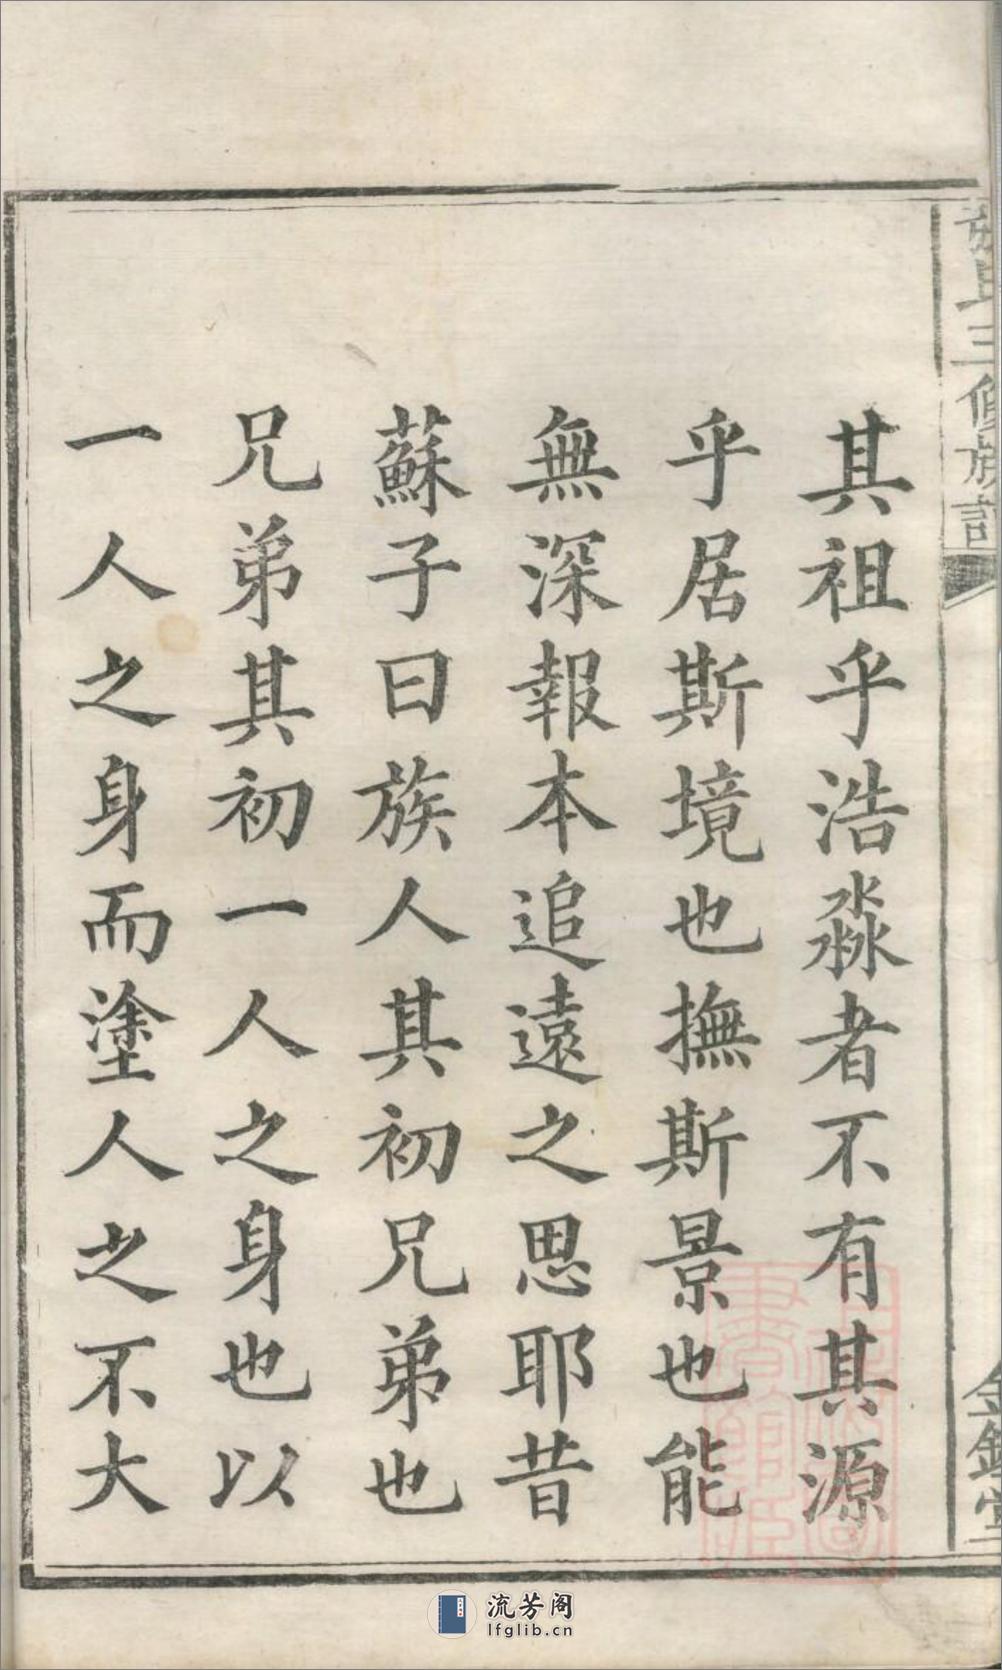 其祖乎浩淼者不有其源
乎居斯境也撫斯景也能
無深報本追遠之思耶昔
蘇子曰族人其初兄弟也
兄弟其初一人之身也以
一人之身而塗人之不大
三修族
金 堂
流芳阁
lfglib.cn